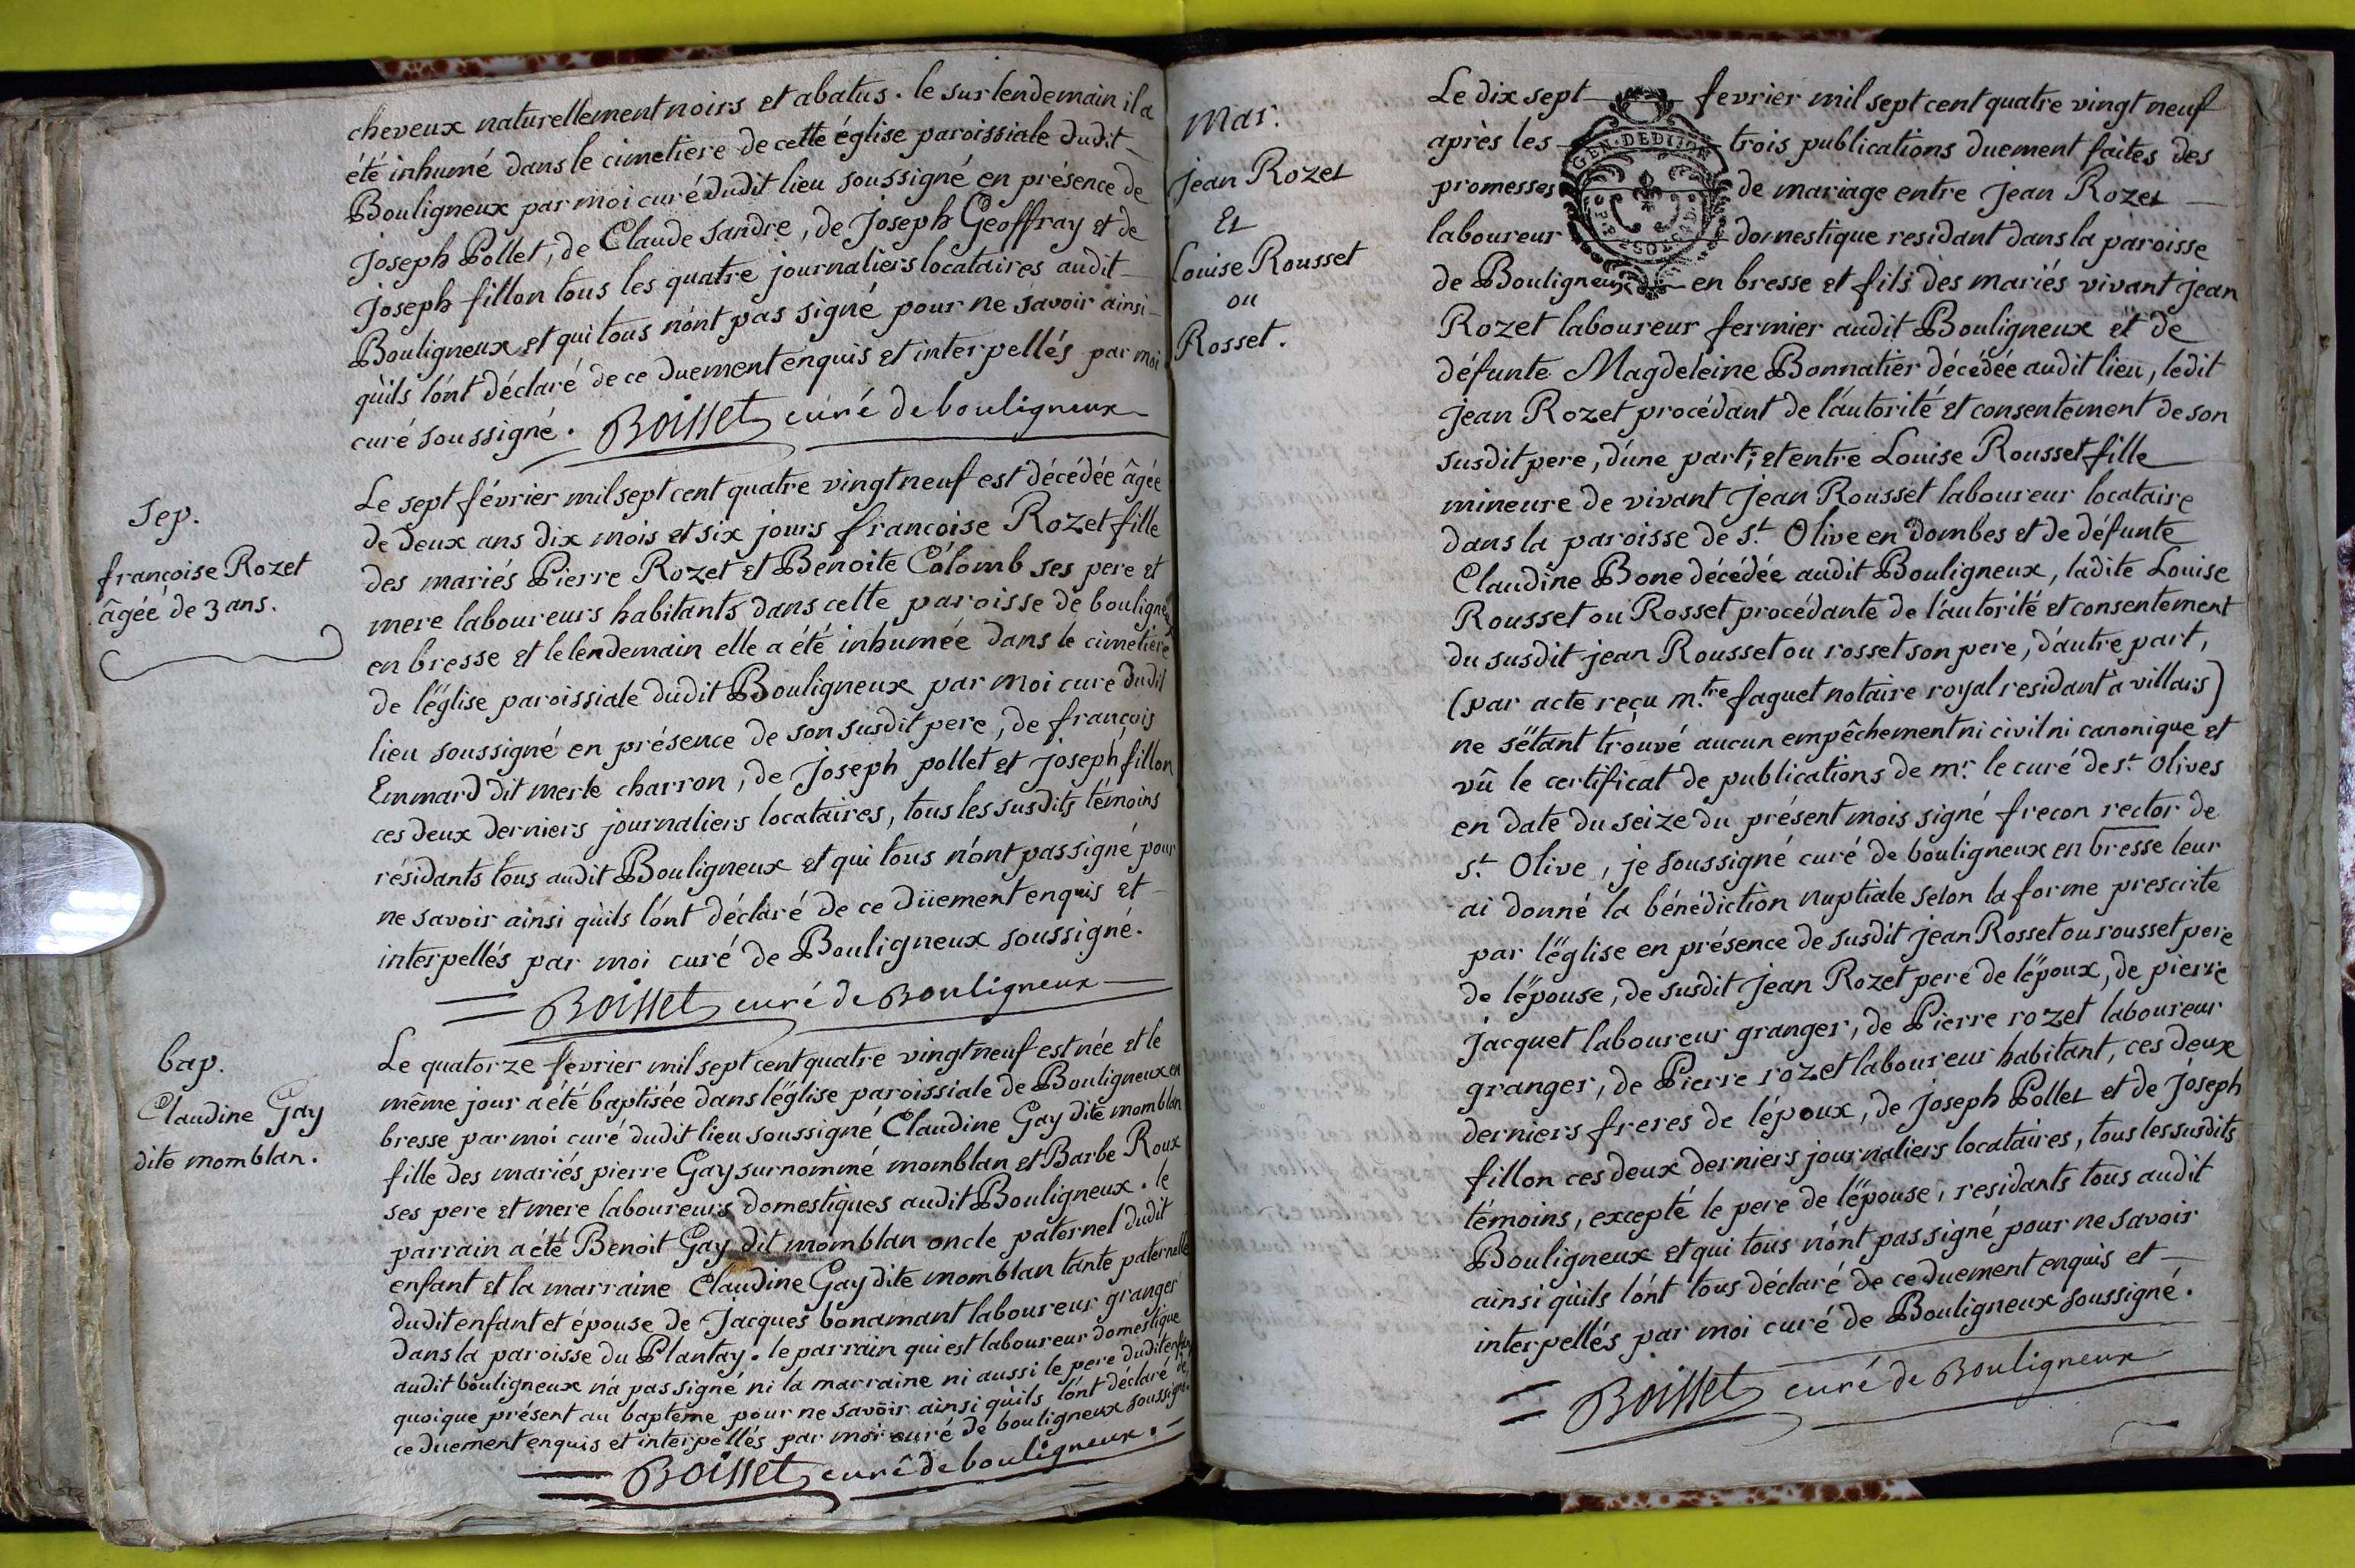 cheveux naturellement noirs et abatus. le surlendemain il a
été inhumé dans le cimetiere de cette église paroissiale dudit
Bouligneux par moi curé dudit lieu soussigné en présence de
joseph Pollet, de Claude sandre, de joseph Geoffray et de
joseph fillon tous les quatre journaliers locataires audit
Bouligneux et qui tous n'ont pas signé pour ne savoir ainsi
qu'ils l'ont déclaré de ce duement enquis et interpellés par moi
curé soussigné. Boisset curé de bouligneux
Sep.
françoise Rozet
âgée de 3 ans.
Le sept février mil sept cent quatre vingt neuf est décédée âgée
de deux ans dix mois et six jours francoise Rozet fille
des mariés Pierre Rozet et Benoite Colomb ses pere et
mere laboureurs habitants dans cette paroisse de bouligneux
en bresse et le lendemain elle a été inhumée dans le cimetiere
de l'église paroissiale dudit Bouligneux par moi curé dudit
lieu soussigné en présence de son susdit pere, de françois
Emmard dit merle charron, de joseph pollet et joseph fillon
ces deux derniers journaliers locataires, tous les susdits témoins
résidants tous audit Bouligneux et qui tous n'ont pas signé pour
ne savoir ainsi qu'ils l'ont déclaré de ce düement enquis et
interpellés par moi curé de Bouligneux soussigné.
Boisset curé de Bouligneux
bap.
Claudine Gay
dite momblan.
Le quatorze fevrier mil sept cent quatre vingt neuf est née et le
même jour a été baptisée dans l'église paroissiale de Bouligneux en
bresse par moi curé dudit lieu soussigné Claudine Gay dite momblan
fille des mariés pierre Gay surnommé momblan et Barbe Roux
ses pere et mere laboureurs domestiques audit Bouligneux. le
parrain a été Benoit Gay dit momblan oncle paternel dudit
enfant et la marraine Claudine Gay dite momblan tante paternelle
dudit enfant et épouse de Jacques bonamant laboureur granger
dans la paroisse du Plantay. le parrain qui est laboureur domestique
audit bouligneux n'a pas signé ni la marraine ni aussi le pere dudit enfant
quoique présent au baptême pour ne savoir ainsi qu'ils l'ont déclaré de
ce duement enquis et interpellés par moi curé de bouligneux soussigné.
Boisset curé de bouligneux.
Mar.
jean Rozet
Et
Louise Rousset
ou
Rosset.
Le dix sept fevrier mil sept cent quatre vingt neuf
après les trois publications duement faites des
promesses de mariage entre jean Rozet
laboureur domestique residant dans la paroisse
de Bouligneux en bresse et fils des mariés vivant jean
Rozet laboureur fermier audit Bouligneux et de
défunte Magdeleine Bonnatier décédée audit lieu, ledit
jean Rozet procédant de l'autorité et consentement de son
susdit pere, d'une part; et entre Louise Rousset fille
mineure de vivant jean Rousset laboureur locataire
dans la paroisse de st. Olive en Dombes et de défunte
Claudine Bone décédée audit Bouligneux, ladite Louise
Rousset ou Rosset procédante de l'autorité et consentement
du susdit jean Rousset ou rosset son pere, d'autre part,
(par acte reçu m.tre faguet notaire royal residant a villars)
ne s'étant trouvé aucun empêchement ni civil ni canonique et
vû le certificat de publications de mr. le curé de st. Olives
en date du seize du présent mois signé frecon rector de
st. Olive, je soussigné curé de bouligneux en bresse leur
ai donné la bénédiction nuptiale selon la forme prescrite
par l'église en présence de susdit jean Rosset ou rousset pere
de l'épouse, de susdit jean Rozet pere de l'époux, de pierre
jacquet laboureur granger, de Pierre rozet laboureur
granger, de Pierre rozet laboureur habitant, ces deux
derniers freres de l'époux, de joseph Pollet et de joseph
fillon ces deux derniers journaliers locataires, tous les susdits
témoins, excepté le pere de l'épouse, residants tous audit
Bouligneux et qui tous n'ont pas signé pour ne savoir
ainsi qu'ils l'ont tous déclaré de ce duement enquis et
interpellés par moi curé de Bouligneux soussigné.
Boisset curé de Bouligneux
GEN. DE DIJON